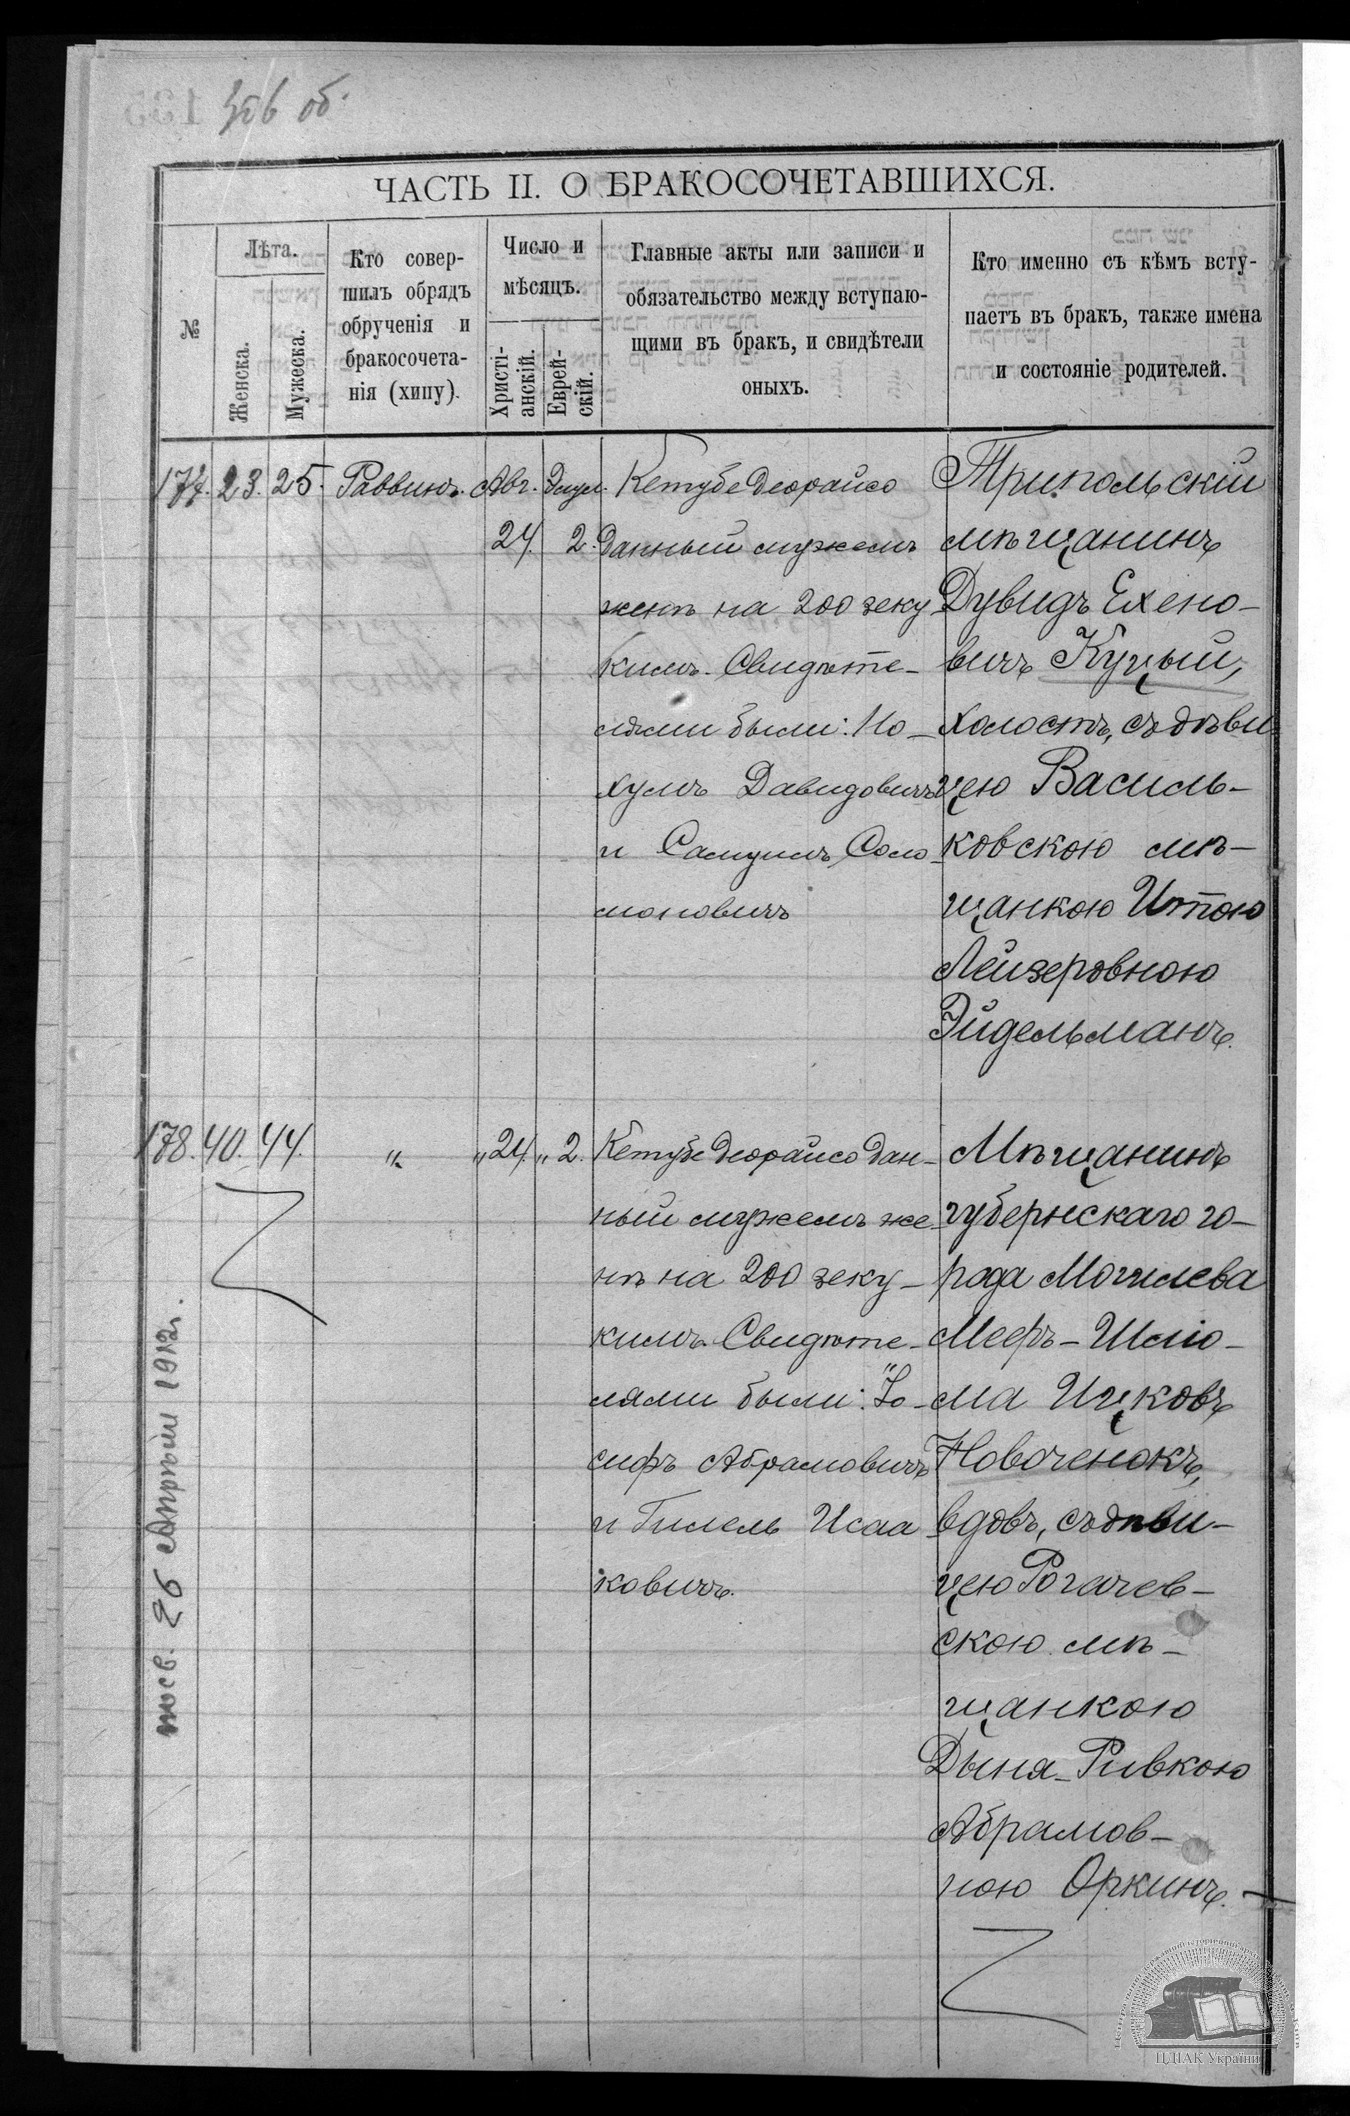 306 об.
ЧАСТЬ II. О БРАКОСОЧЕТАВШИХСЯ.
№
Лѣта.
Женска.
Мужеска.
Кто совер-
шилъ обрядъ
обрученія и
бракосочета-
нія (хипу).
Число и
мѣсяцъ.
Христі-
анскій.
Еврей-
скій.
Главные акты или записи и
обязательство между вступаю-
щими въ бракъ, и свидѣтели
оныхъ.
Кто именно съ кѣмъ всту-
паетъ въ бракъ, также имена
и состояніе родителей.
177. 23. 25. Раввинъ. Авг. Элул.
24. 2.
Кетубе деорайсо
данный мужемъ
женѣ на 200 зеку
кимъ. Свидѣте-
лями были: Но-
хумъ Давидовичъ
и Самуилъ Соло
моновичъ
Трипольскій
мѣщанинъ
Дувидъ Ехено-
вичъ Куцый,
холостъ, съ дѣви
цею Василь-
ковскою мѣ-
щанкою Итою
Лейзеровною
Эйдельманъ.
178. 40. 44. " " 24. " 2.
Кетубе деорайсо дан-
ный мужемъ же-
нѣ на 200 зеку-
кимъ. Свидѣте-
лями были: Іо-
сифъ Абрамовичъ
и Гилель Исаа
ковичъ.
Мѣщанинъ
губернскаго го-
рода Могилева
Мееръ-Шліо-
ма Ицковъ
Новоченокъ,
вдовъ, съ дѣви-
цею Рогачев-
скою мѣ-
щанкою
Дыня-Ривкою
Абрамов-
ною Оркинъ.
26 Апрѣля 1912г.
ЦДІАК України